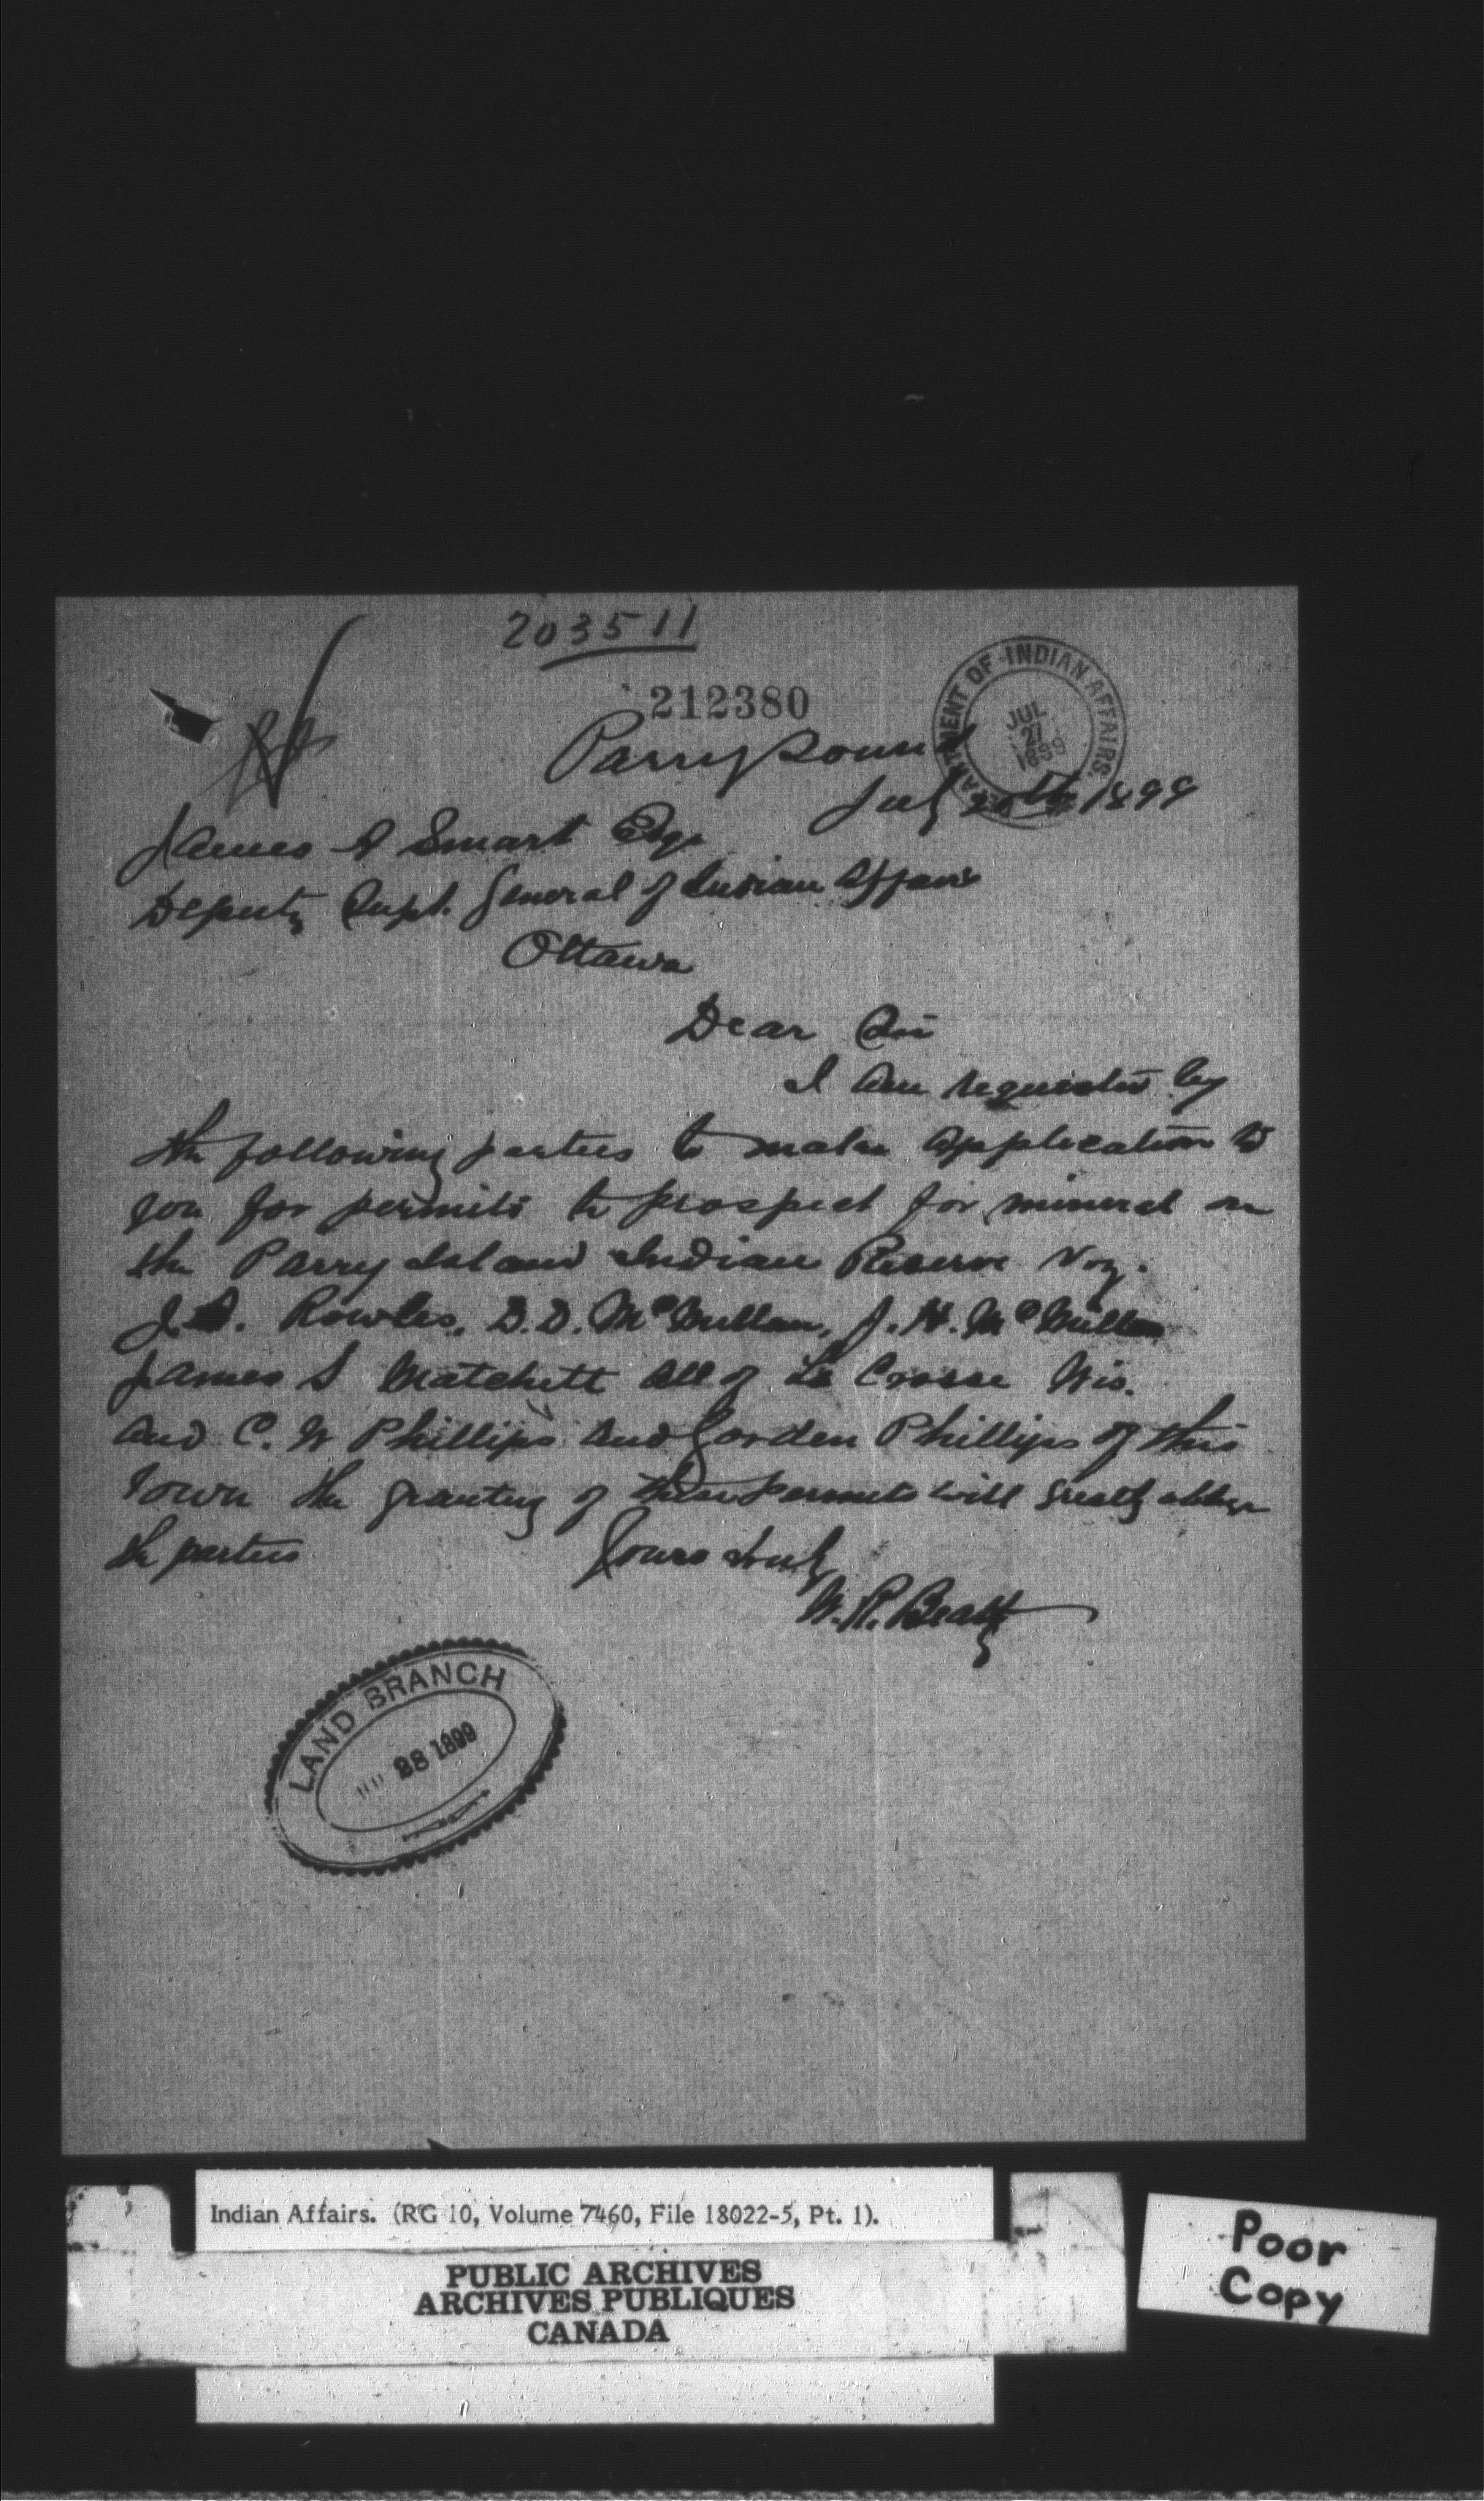 203511
212380
DEPARTMENT OF INDIAN AFFAIRS.
JUL
27
1899
Parry Sound
July 1899
James A Smart Esqr
Deputy Supt. General of Indian Affairs
Ottawa
Dear Sir
I am requested by
the following parties to make application to
you for permits to prospect for mineral on
the Parry Island Indian Reserve Viz.
J. Rowles, D.D. McMillan, J.H. McMillan
James S Matchett all of La Crosse Wis.
and C. W Phillips and Gorden Phillips of this
Town the granting of these permits will greatly oblige
the parties
Yours truly
W.R. Beatty
LAND BRANCH
28 1899
Indian Affairs. (RG 10, Volume 7460, File 18022-5, Pt. 1).
PUBLIC ARCHIVES
ARCHIVES PUBLIQUES
CANADA
Poor
Copy